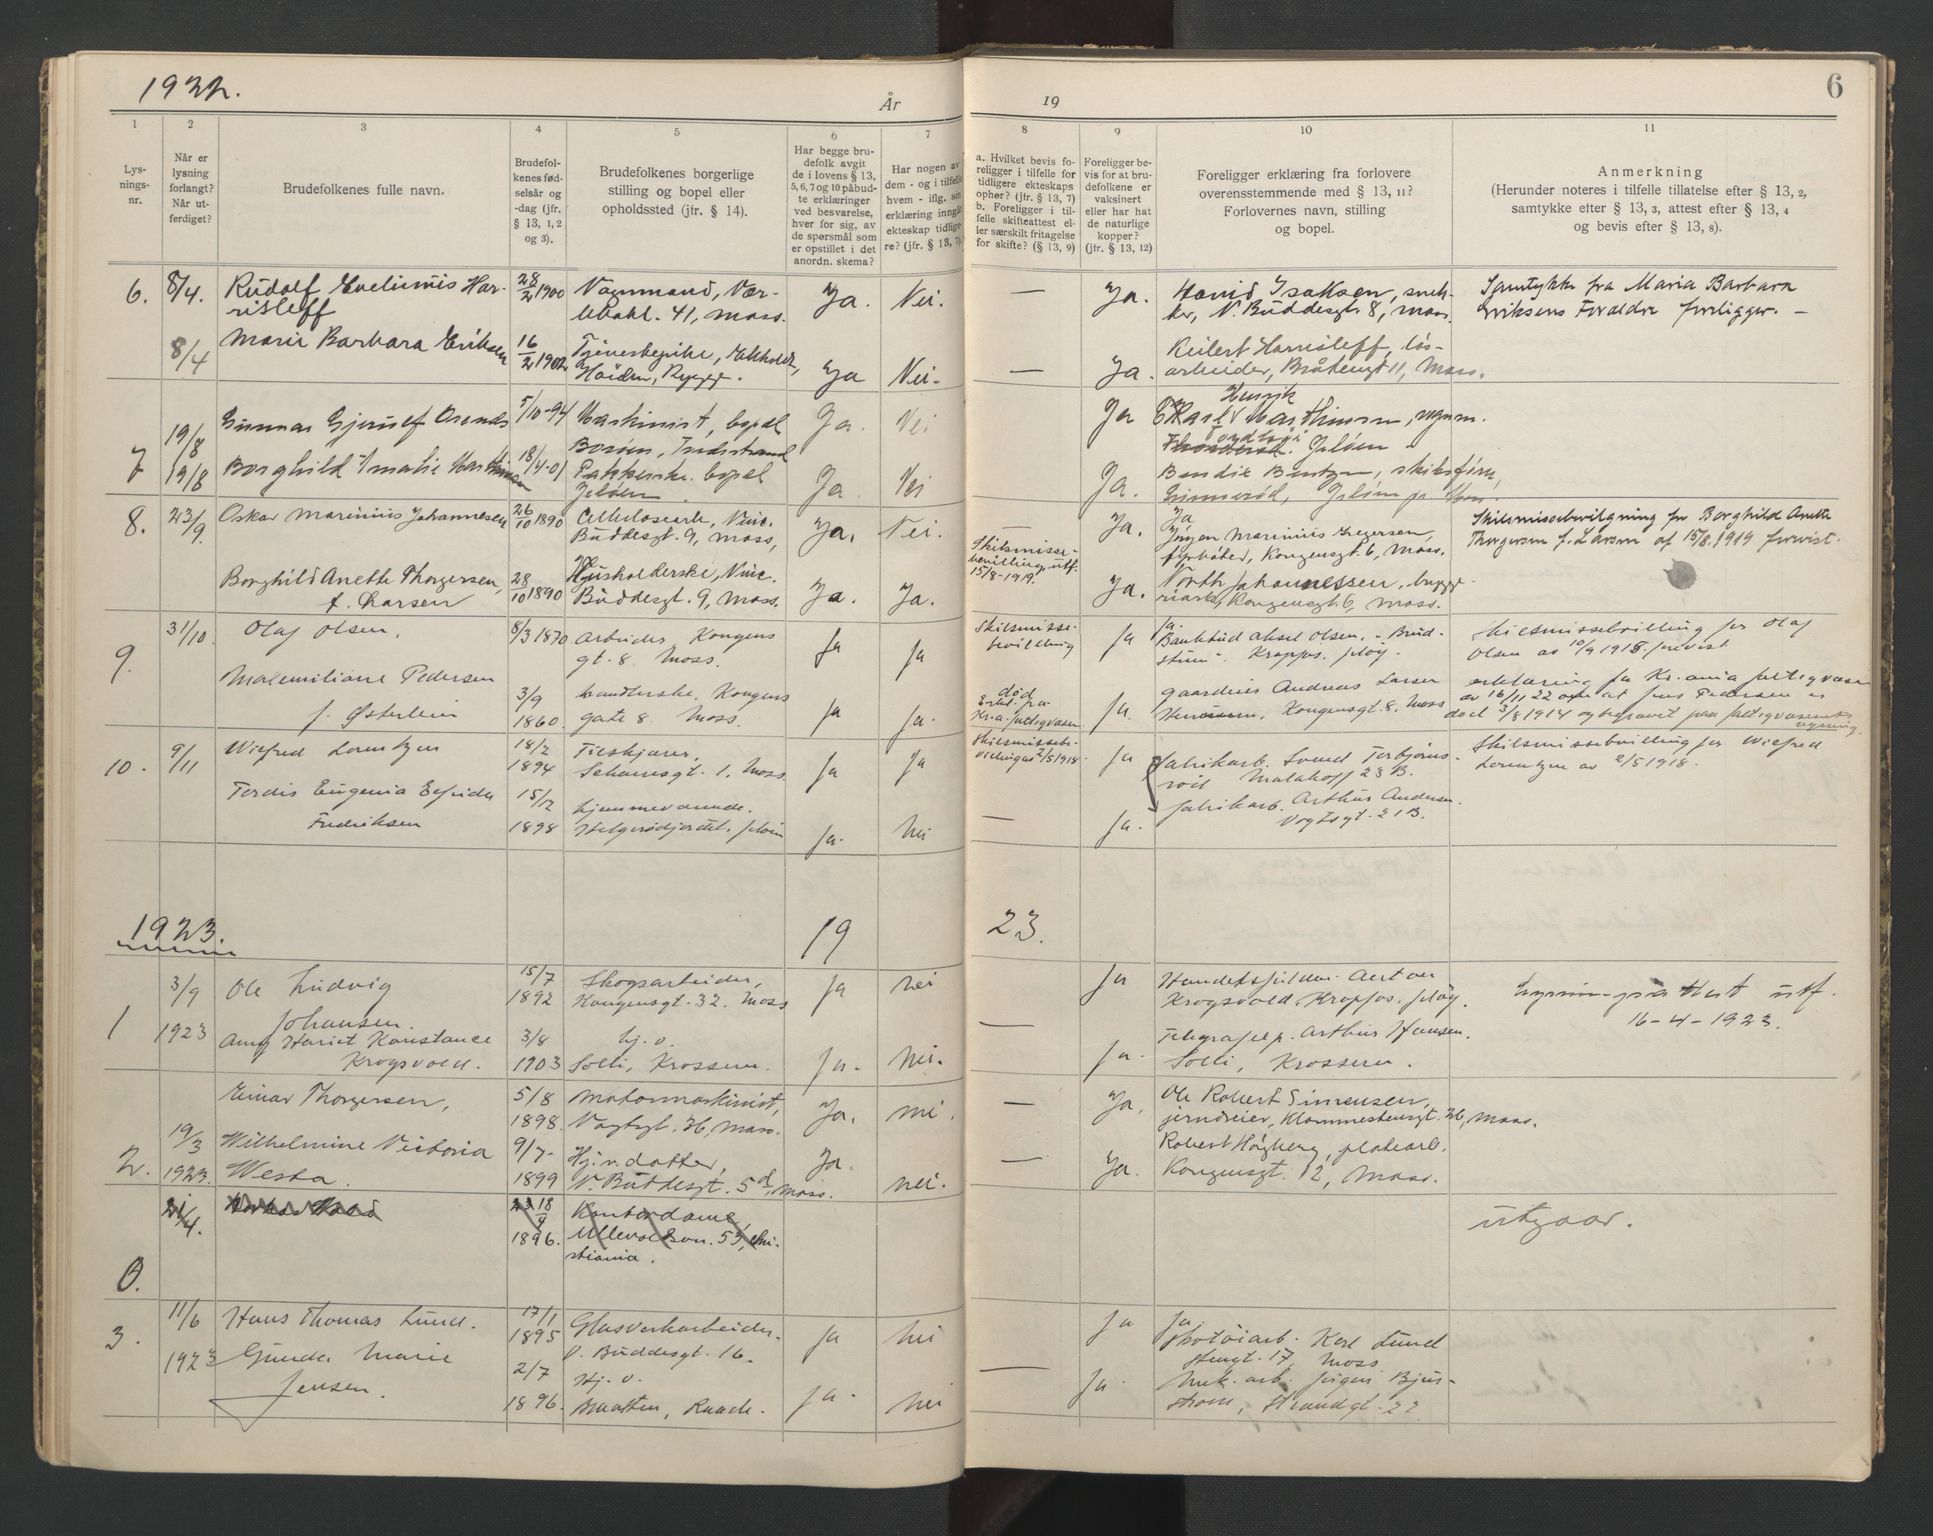 1922.
År
19
6
1
2
3
4
5
6
7
8
9
10
11
Lys-
nings-
nr.
Når er
lysning
forlangt?
Når ut-
ferdiget?
Brudefolkenes fulle navn.
Brudefol-
kenes fød-
selsår og
-dag (jfr.
§ 13, 1, 2
og 3).
Brudefolkenes borgerlige
stilling og bopel eller
opholdssted (jfr. § 14).
Har begge bru-
defolk avgit
de i lovens § 13,
5, 6, 7 og 10 påbud-
te erklæringer
ved besvarelse,
hver for sig, av
de spørsmål som
er opstillet i det
anordn. skema?
Har nogen av
dem - og i tilfelle
hvem - iflg. sin
erklæring inngåt
ekteskap tidlige-
re? (jfr. § 13, 7).
a. Hvilket bevis fo-
religger i tilfelle for
tidligere ekteskaps
ophør? (jfr. § 13, 7)
b. Foreligger i til-
felle skifteattest el-
ler særskilt fritagelse
for skifte? (§ 13, 9)
Foreligger be-
vis for at bru-
defolkene er
vaksinert
eller har hat
de naturlige
kopper?
(jfr. § 13, 12)
Foreligger erklæring fra forlovere
overensstemmende med § 13, 11?
Forlovernes navn, stilling
og bopel.
Anmerkning
(Herunder noteres i tilfelle tillatelse efter § 13, 2,
samtykke efter § 13, 3, attest efter § 13, 4
og bevis efter § 13, 8).
6. 8/4. Rudolf Evelinius Har-
risleff
28/2 1900
Vognmand, Vær-
lebakk. 41, Moss.
Ja. Nei. — Ja.
David Isaksen, snek-
ker, N. Buddesgt. 8, Moss.
Samtykke fra Maria Barbara
Eriksens Foreldre foreligger. —
8/4
Marie Barbara Eriksen
16/2 1902
Tjenestepike, Ekholdt,
Høiden, Rygge.
Ja Nei. — Ja.
Keilert Harrisleff, løs-
arbeider, Bråtengt 11, Moss.
7
19/8
Gunnar
5/10-94
Maskinist, bopæl
Ja. Nei Ja
Henrik
Karl Marthinsen, vognm.
Jeløen
19/8
Borghild Amalie Marthinsen
18/4-01
Pakkerske. bopæl
Jeløen
Ja. Nei Ja.
Bendik Bentzen, skibsfører,
8. 23/9.
Oskar Marinius Johannesen
26/10 1890
Cellulosearb., Vinc.
Buddesgt. 9, Moss,
Ja. Nei. — Ja.
Ja
Jørgen Marinius Gregersen,
fyrbøter, Kongensgt. 6, Moss.
Skilsmissebevilgning for Borghild Anette
Thorgersen f. Larsen af 15/8. 1919 forevist.
Borghild Anette Thorgersen,
f. Larsen
28/10 1890
Husholderske, Vinc.
Buddesgt. 9, Moss.
Ja. Ja.
Skilsmisse-
bevilling, utf.
15/8-1919.
Ja.
North Johannessen, bygge-
Kongensgt. 6, Moss.
9. 31/10.
Olaf Olsen,
8/3 1870
Arbeider, Kongens
gt. 8 Moss.
Ja Ja
Skilsmisse-
bevilling
Ja
Ja.
Aksel Olsen,
Skilsmissebevilling for Olaf
Olsen av 10/9 1918. forevist
Pedersen
f. Østerlein
3/9
1860.
handlerske, Kongens
gate 8. Moss.
Ja Ja.
død
Ja.
Gaardeier Andreas Larsen
Kongensgt. 8. Moss
erklæring fra Kr.ania fattigvæsen
av 16/11 22 om at Pedersen er
død 3/8 1914 og begravet paa fattigvæsenets
regning.
10. 9/11
Wilfred Lorentzen
18/2
1894
Tilskjærer,
Schansegt. 1. Moss
Ja Ja
Skilsmissebe-
villing av 2/5 1918.
Ja
Fabrikarb. Svend Torbjørns-
rød Malakoff 23 B.
Skilsmissebevilling for Wilfred
Lorentzen av 2/5 1918.
Tordis Eugenia
Fredriksen
15/12
1898
hjemmeværende.
Ja. Nei — Ja.
Fabrikarb. Arthur Andersen.
Vogtsgt. 21 B.
1923. 19 23.
1
3/9
1923
Ole Ludvig
Johansen.
15/7
1892
Skogsarbeider,
Kongensgt. 32. Moss
Ja Nei Ja
Krogsvold,
16-4-1923.
Amy Hariet Konstance
Krogsvold.
3/8
1903
hj. v.
Solli, Krossern.
Ja. Nei. — Ja.
Arthur Hansen.
Solli, Krossern.
2.
19/3
1923.
Einar Thorgersen,
5/8
1898.
Motormaskinist,
Vogtsgt. 36, Moss.
Ja. Nei. — Ja,
Ole Robert Simensen,
jerndreier, Klommestensgt. 36, Moss.
Wilhelmine Victoria
Westa.
9/7-
1899
Hj.v. datter,
V. Buddesgt. 5d, Moss.
Ja. Nei. — Ja.
Robert Høgberg, platearb.
Kongensgt. 12, Moss.
0.
21/4.
18/9
1896.
Kontordame,
Ullevoldsvn. 53, Kri-
stiania.
utgaar.
3.
11/6
1923
Hans Thomas Lund.
17/1
1895
Glasverkarbeider.
V. Buddesgt. 16.
Ja Nei Ja
Ja
Karl Lund
17, Moss
Gunda Marie
Jensen.
2/7
1896.
Hj. v.
Raade.
Ja. Nei — Ja.
Strandgt. 22